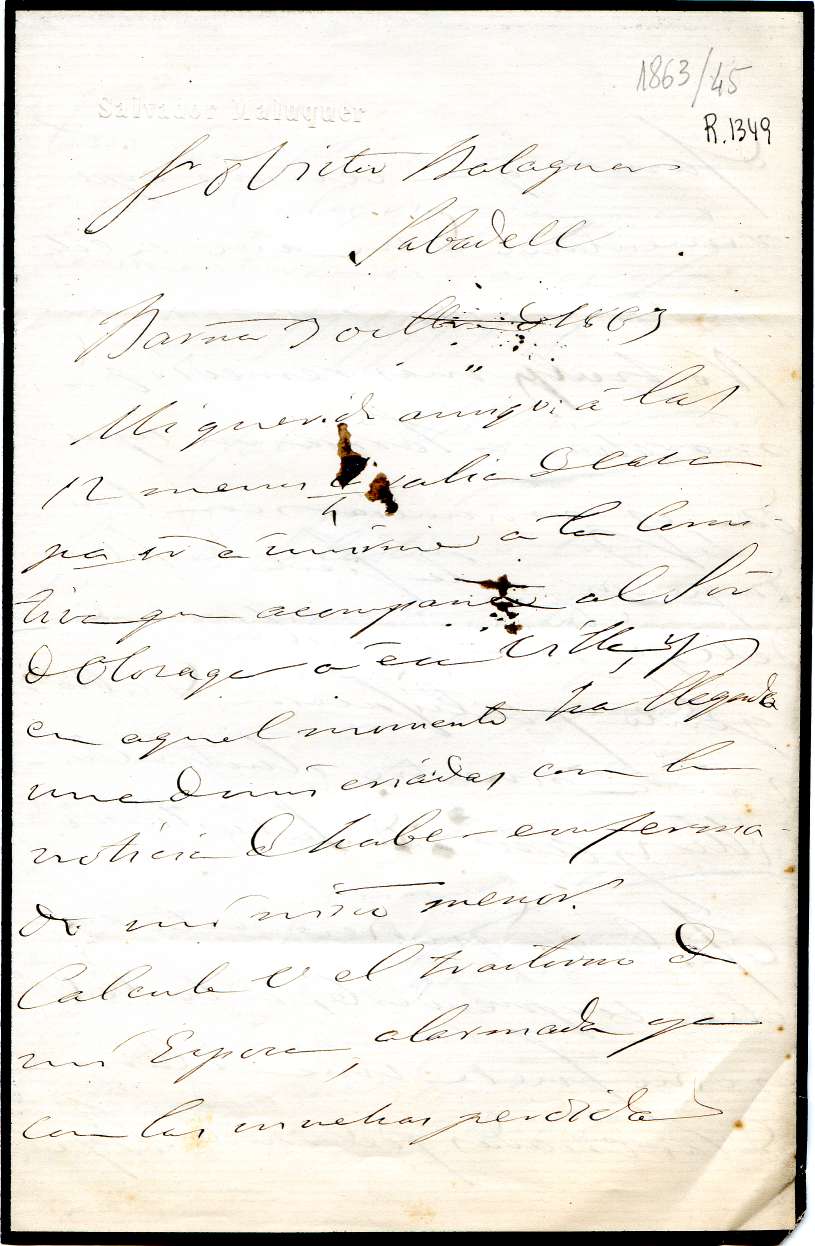 1863/45
R.1349
Salvador Maluquer
Sr D Victor Balaguer
Sabadell
Barna 3 octbre d 1863
Mi querido amigo: á las
12 menos 1/4 salia de casa
para unirme a la comi-
tiva que acompaña al Sor
d Olozaga á esa Villa, y
en aquel momento ha llegado
una d mis criadas con la
noticia d haber enferma-
do mi niño menor.
Calcule V el trastorno d
mi Esposa, alarmada ya
con las muchas perdidas